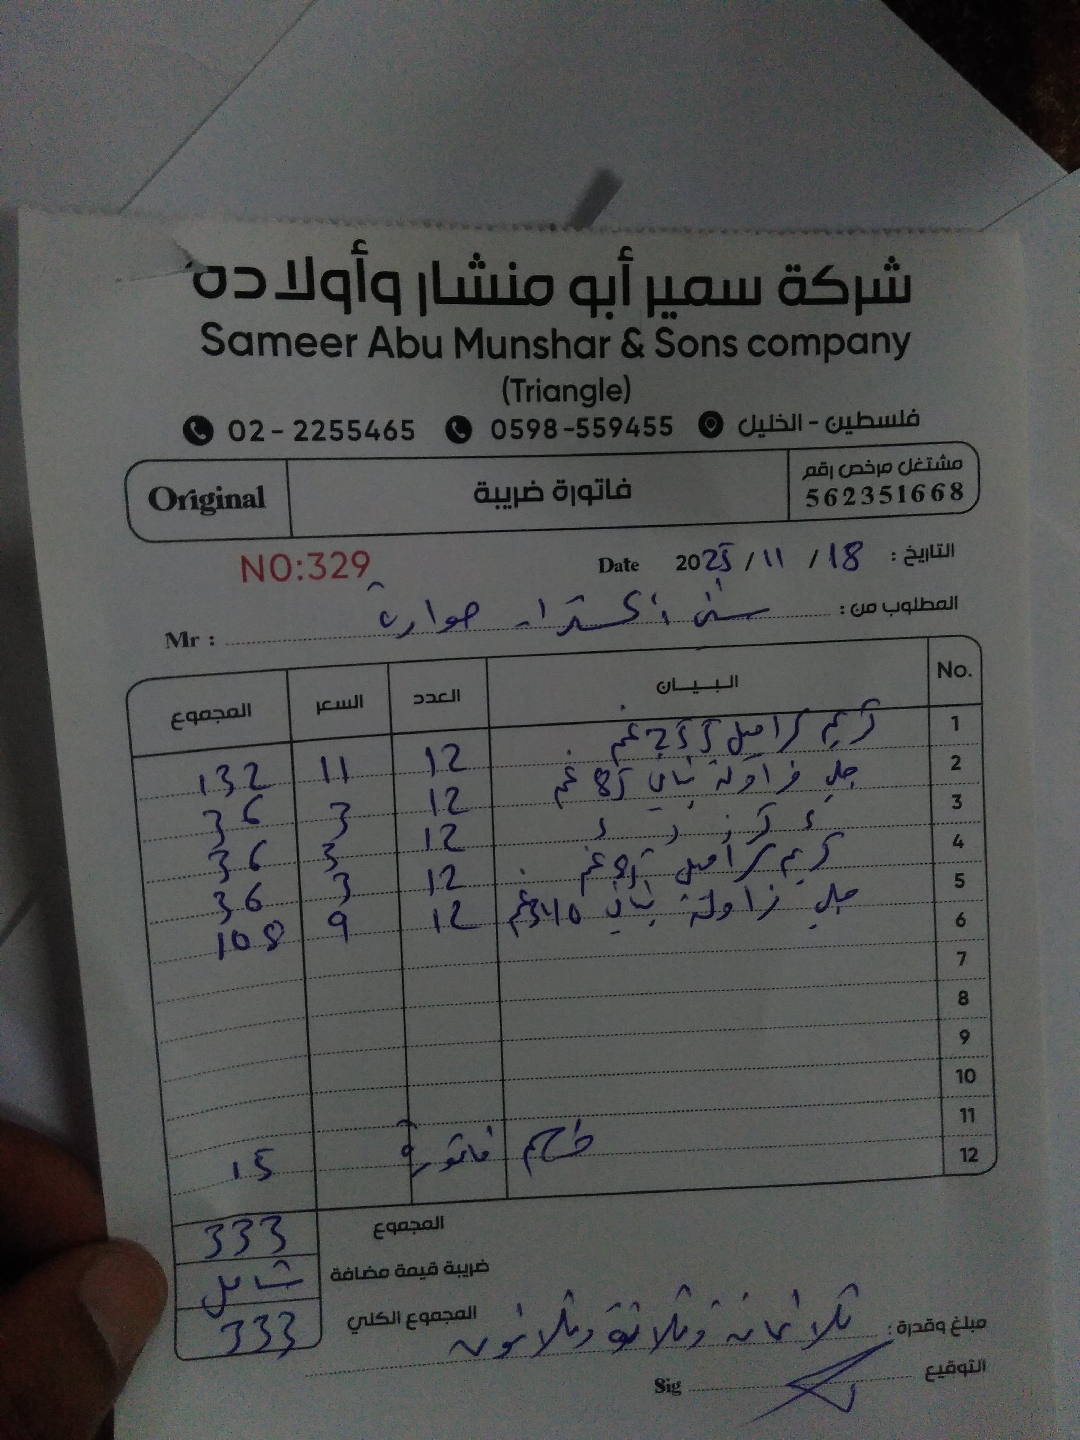 شركة سمير أبو منشار وأولاده
Sameer Abu Munshar & Sons company
(Triangle)
02-2255465 0598-559455 فلسطين - الخليل
Original فاتورة ضريبة مشتغل مرخص رقم
562351668
NO:329 Date 2025 / 11 / 18 التاريخ :
Mr : حوارة المطلوب من :
No. البيـــان العدد السعر المجموع
1 كريم كراميل غم 12 11 132
2 جلي فراولة نباتي 85 غم 12 3 36
3 12 3 36
4 كريم كراميل 85 غم 12 3 36
5 جلي فراولة نباتي 340 غم 12 9 108
6
7
8
9
10
11
12 خصم فاتورة 15
المجموع 333
ضريبة قيمة مضافة شامل
المجموع الكلي 333
مبلغ وقدرة : ثلاثمائة وثلاثة وثلاثون
Sig التوقيع